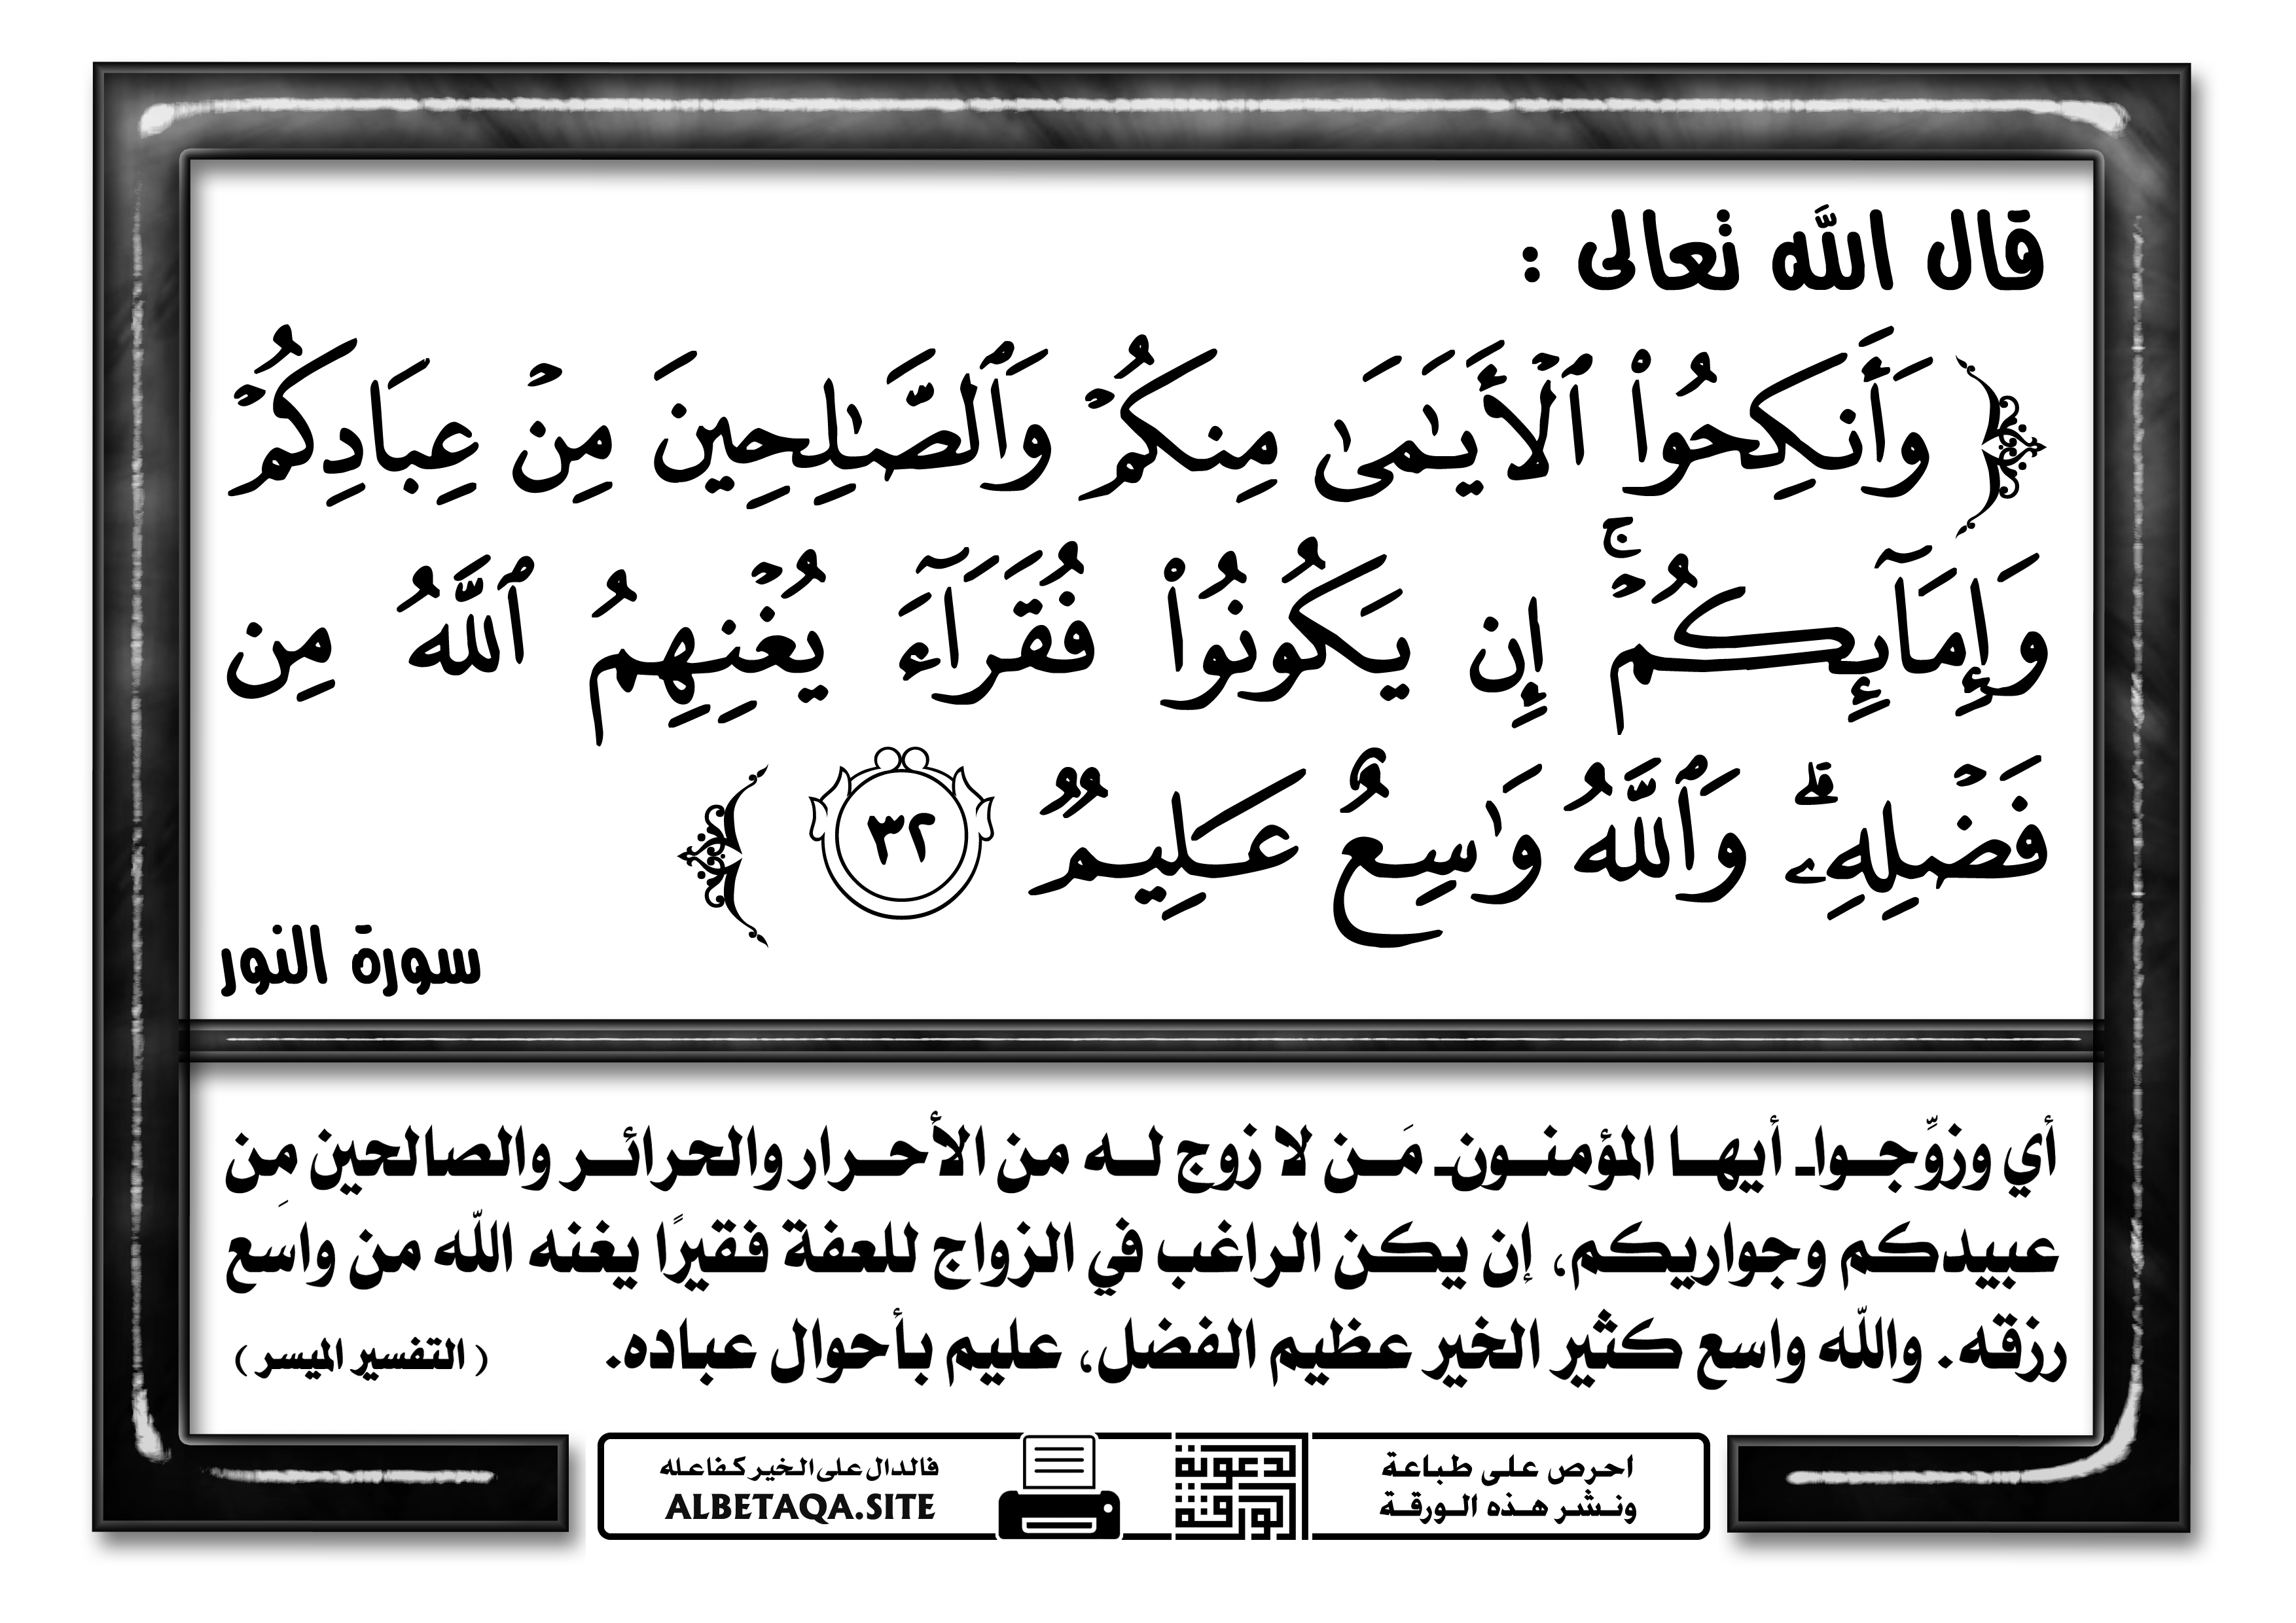 قال الله تعالى :
﴿ وَأَنكِحُوا۟ ٱلْأَيَـٰمَىٰ مِنكُمْ وَٱلصَّـٰلِحِينَ مِنْ عِبَادِكُمْ
وَإِمَآئِكُمْ ۚ إِن يَكُونُوا۟ فُقَرَآءَ يُغْنِهِمُ ٱللَّهُ مِن
فَضْلِهِۦ ۗ وَٱللَّهُ وَٰسِعٌ عَلِيمٌ ٣٢ ﴾
سورة النور
أي وزوِّجوا ـ أيها المؤمنون ـ مَن لا زوج له من الأحرار والحرائر والصالحين مِن
عبيدكم وجواريكم، إن يكن الراغب في الزواج للعفة فقيرًا يغنه الله من واسع
رزقه. والله واسع كثير الخير عظيم الفضل، عليم بأحوال عباده. ( التفسير الميسر )
احرص على طباعة
ونشر هذه الورقة
الورقة
الدعوية
فالدال على الخير كفاعله
ALBETAQA.SITE